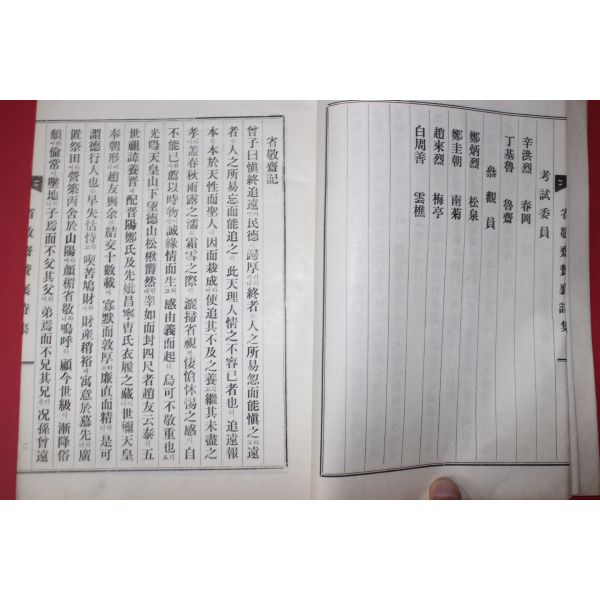 考試委員
辛洪烈 春岡
丁基魯 魯齋
叅觀員
鄭炳烈 松泉
鄭圭朝 南菊
趙來烈 梅亭
白周善 雲樵
省敬齋記
曾子曰愼終追遠민民德歸厚라終者人之所易忽而能愼之고遠
者人之所易忘而能追之此天理人情之不容已者也追遠報
本本於天性而聖人因而栽成使追其不及之養繼其未盡之
孝盖春秋雨露之濡霜雪之際灑掃省視悽愴怵惕之感自
不能已薦以時物誠緣情而生고感由義而起烏可不敬重也
光陽天皇山下望德山松楸欝然睾如面封四尺者趙友云泰五
世祖諱養晋配晋陽鄭氏及先妣昌寧曺氏衣履之藏世禰天皇
奉朝形趙友與余結交十數載寡默而敦厚고廉直而精是可
謂德行人也早失怙恃고喫苦鳩財財產稍裕寓意於慕先廣
置祭田營築丙舍於山陽顔楣省敬嗚呼라顧今世級漸降俗
頹倫常墜地子焉而不父其父弟焉而不兄其兄况孫曾遠
省敬齋贊襄詩集
二